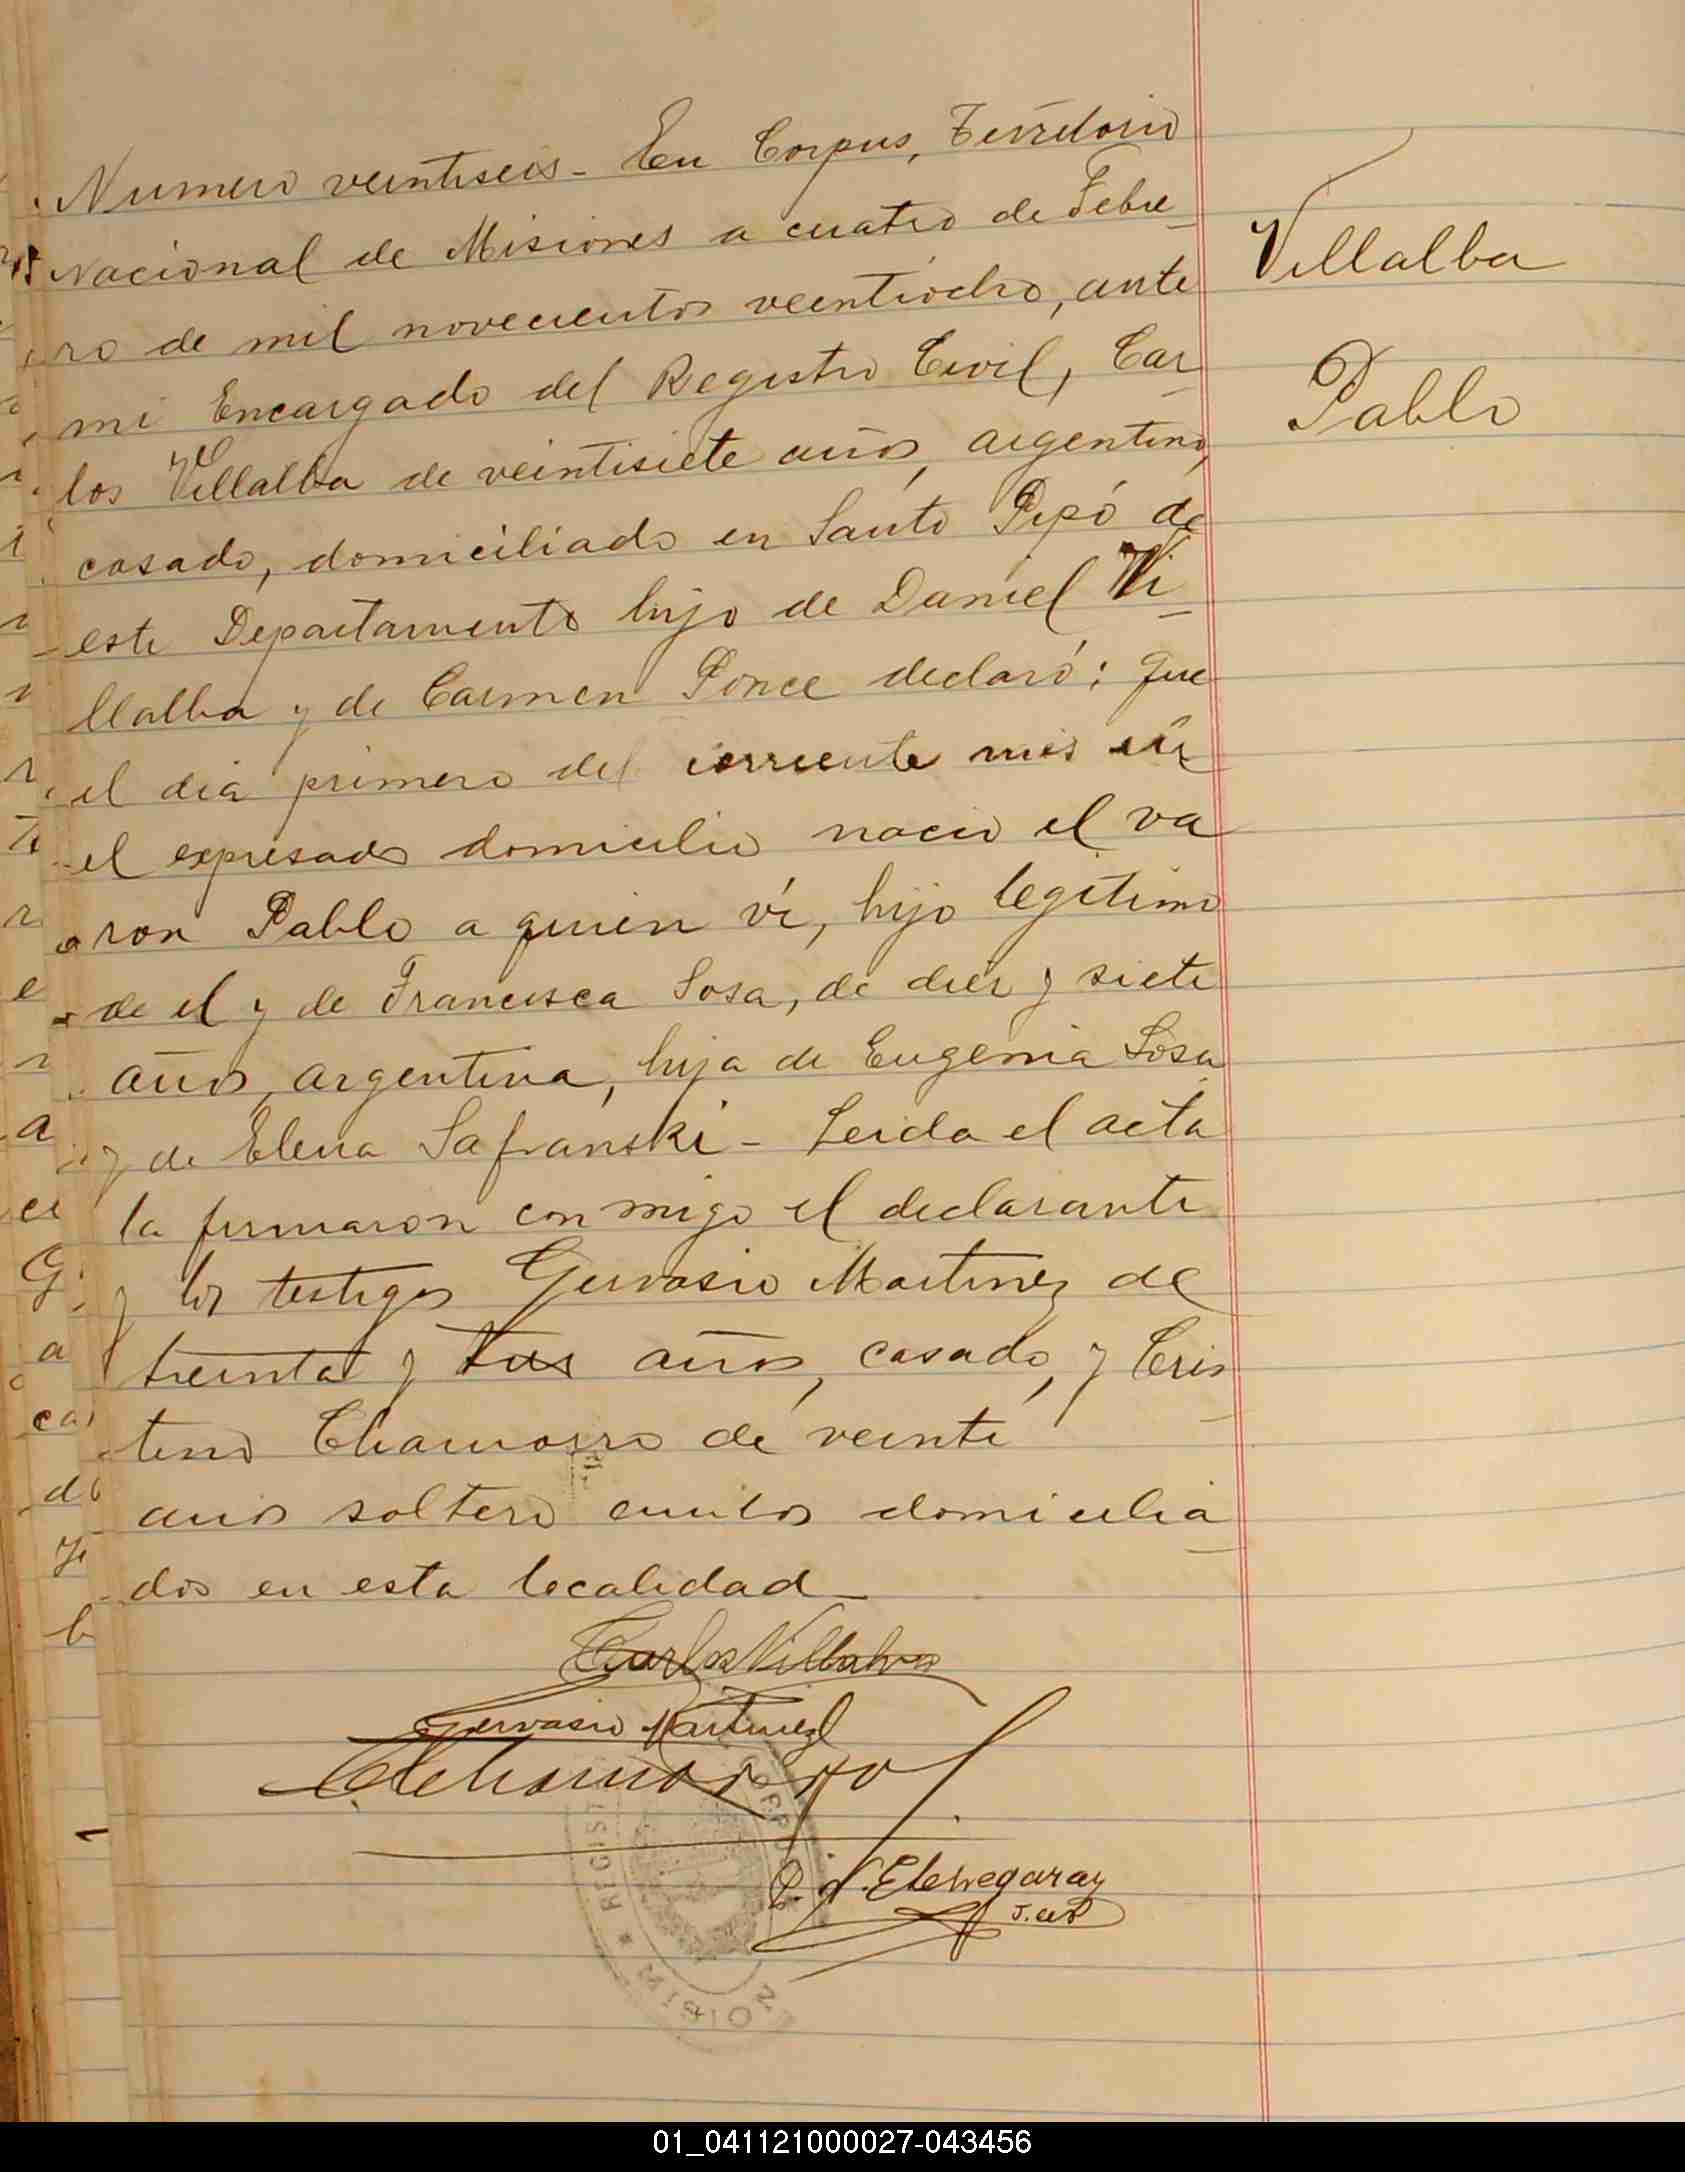 Numero veintiseis - En Corpus, Territorio
Nacional de Misiones a cuatro de Febre_
ro de mil novecientos veintiocho, ante
mi Encargado del Registro Civil, Car_
los Villalba de veintisiete años, argentino,
casado, domiciliado en Santo Pipó de
este Departamento hijo de Daniel Vi_
llalba y de Carmen Ponce declaró: que
el dia primero del corriente mes en
el expresado domicilio nacio el va
ron Pablo a quien ví, hijo legitimo
de el y de Francisca Sosa, de diez y siete
años, argentina, hija de Eugenia Sosa
y de Elena Safranski - Leida el acta
la firmaron con migo el declarante
y los testigos Gervasio Martinez de
treinta y tres años, casado, y Cris_
tino Chamorro de veinte
años soltero ambos domicilia_
dos en esta localidad_
Villalba
Pablo
Carlos Villalva
Gervasio Martinez
C Chamorro
Etchegaray
J. de P
REGIST
CORPUS
MISIONES
1
01_041121000027-043456